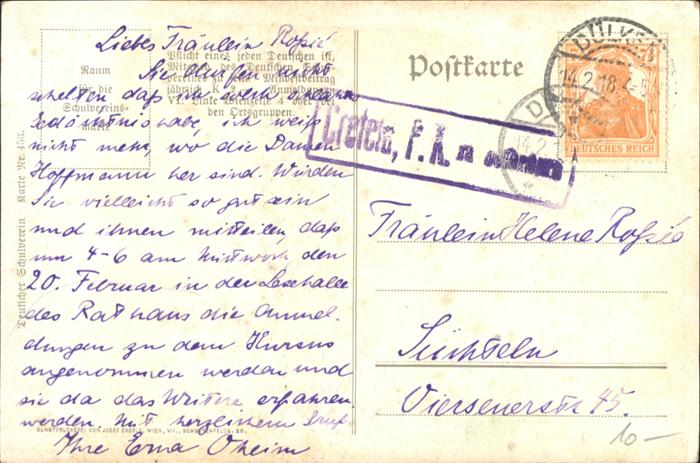 Liebes Fräulein Roßié
Sie dürfen nicht
schelten daß ich solch schlechtes
Gedächtnis habe, ich weiß
nicht mehr, wo die Damen
Hoffmann her sind. Würden
Sie vielleicht so gut sein
und ihnen mitteilen, daß
um 4-6 am Mittwoch den
20. Februar in der Lesehalle
des Rathaus die Anmel-
dungen zu dem Kursus
angenommen werden und
sie da das Weitere erfahren
werden. Mit herzlichem Gruß
Ihre Erna Oheim
Raum
für die
Schulvereins-
marke
Pflicht eines jeden Deutschen ist,
Mitglied des Deutschen
jährlich K 2. Anmeldungen
VI. Linke Wienzeile 4 oder bei
den Ortsgruppen.
Deutscher Schulverein Karte Nr. 453.
KUNSTDRUCKEREI VON JOSEF EBERLE, WIEN, VII.,
Postkarte
DÜLKEN
14.2.18
DEUTSCHES REICH
14.2
Crefeld, F. K.
Fräulein Helene Roßié
Süchteln
Viersenerstr 45.
10-